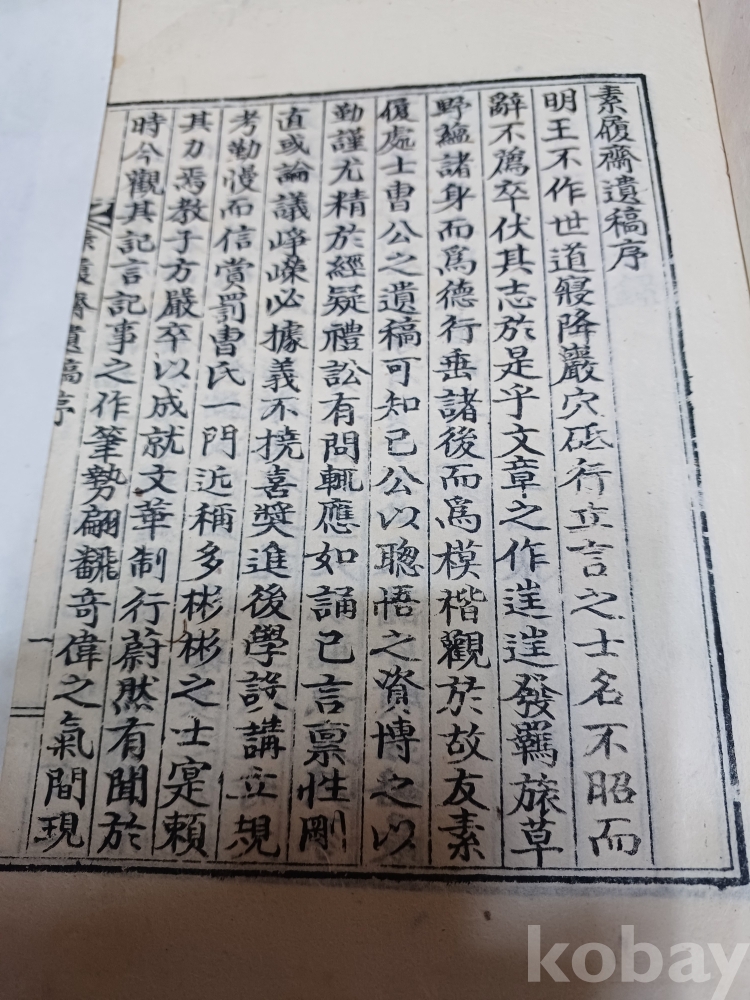 素履齋遺稿序
明王不作世道寢降巖穴砥行立言之士名不昭而
辭不爲卒伏其志於是乎文章之作逞逞發羈旅草
野蘊諸身而爲德行垂諸後而爲模楷觀於故友素
履處士曺公之遺稿可知已公以聰悟之資博之以
勤謹尤精於經疑禮訟有問輒應如誦己言禀性剛
直或論議崢嶸必據義不撓喜奬進後學設講立規
考勤慢而信賞罰曺氏一門近稱多彬彬之士寔賴
其力焉教子方嚴卒以成就文華制行蔚然有聞於
時今觀其記言記事之作筆勢翩翻奇偉之氣間現
素履齋遺稿序
一
kobay